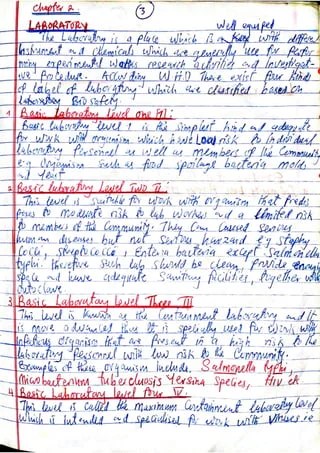 Chapter 2.
3
LABORATORY
Well equiped
The Laboratory is a place which is with different
Instrument and chemicals which are generally use for perfor
ming experiment works research activities and Investigat-
ive Procedure. According W.H.O There exist four kind
of label of laboratory which are classified based on
Laboratory Bio safety.
1 Basic laboratory level one I:
Basic laboratory level 1 is the simplest kind and adequate
for work with organism which have low risk to Individual
laboratory Personnel as well as members of the Community
e.g Organism such as food spoilage bacteria molds
and Yeast
2 Basic laboratory Level Two II
This level is suitable for work with organism that Predis
poses to moderate risk to lab workers and a limited risk
to members of the Community. They can caused serious
human diseases but not serious hazard eg staphy
Cocci, streptococci, Enteria bacteria except Salmonella
typhi. therefore such lab should be clean, Provide enough
space and have adequate Sanitary facilities, together with
autoclave
3 Basic Laboratory Level Three III
This level is known as the Containment laboratory and It
is more advanced than II It is specially used for work with
infectious organism that are Present in a high risk to the
laboratory Personnel with low risk to the Community.
Examples of these organism Include. Salmonella typhi,
Mycobacterium tuberculosis Yersina Species, Hiv etc
4 Basic Laboratory Level four IV.
This level is called the maximum Containment laboratory level
which is intended and specialised for work with Viruses ie